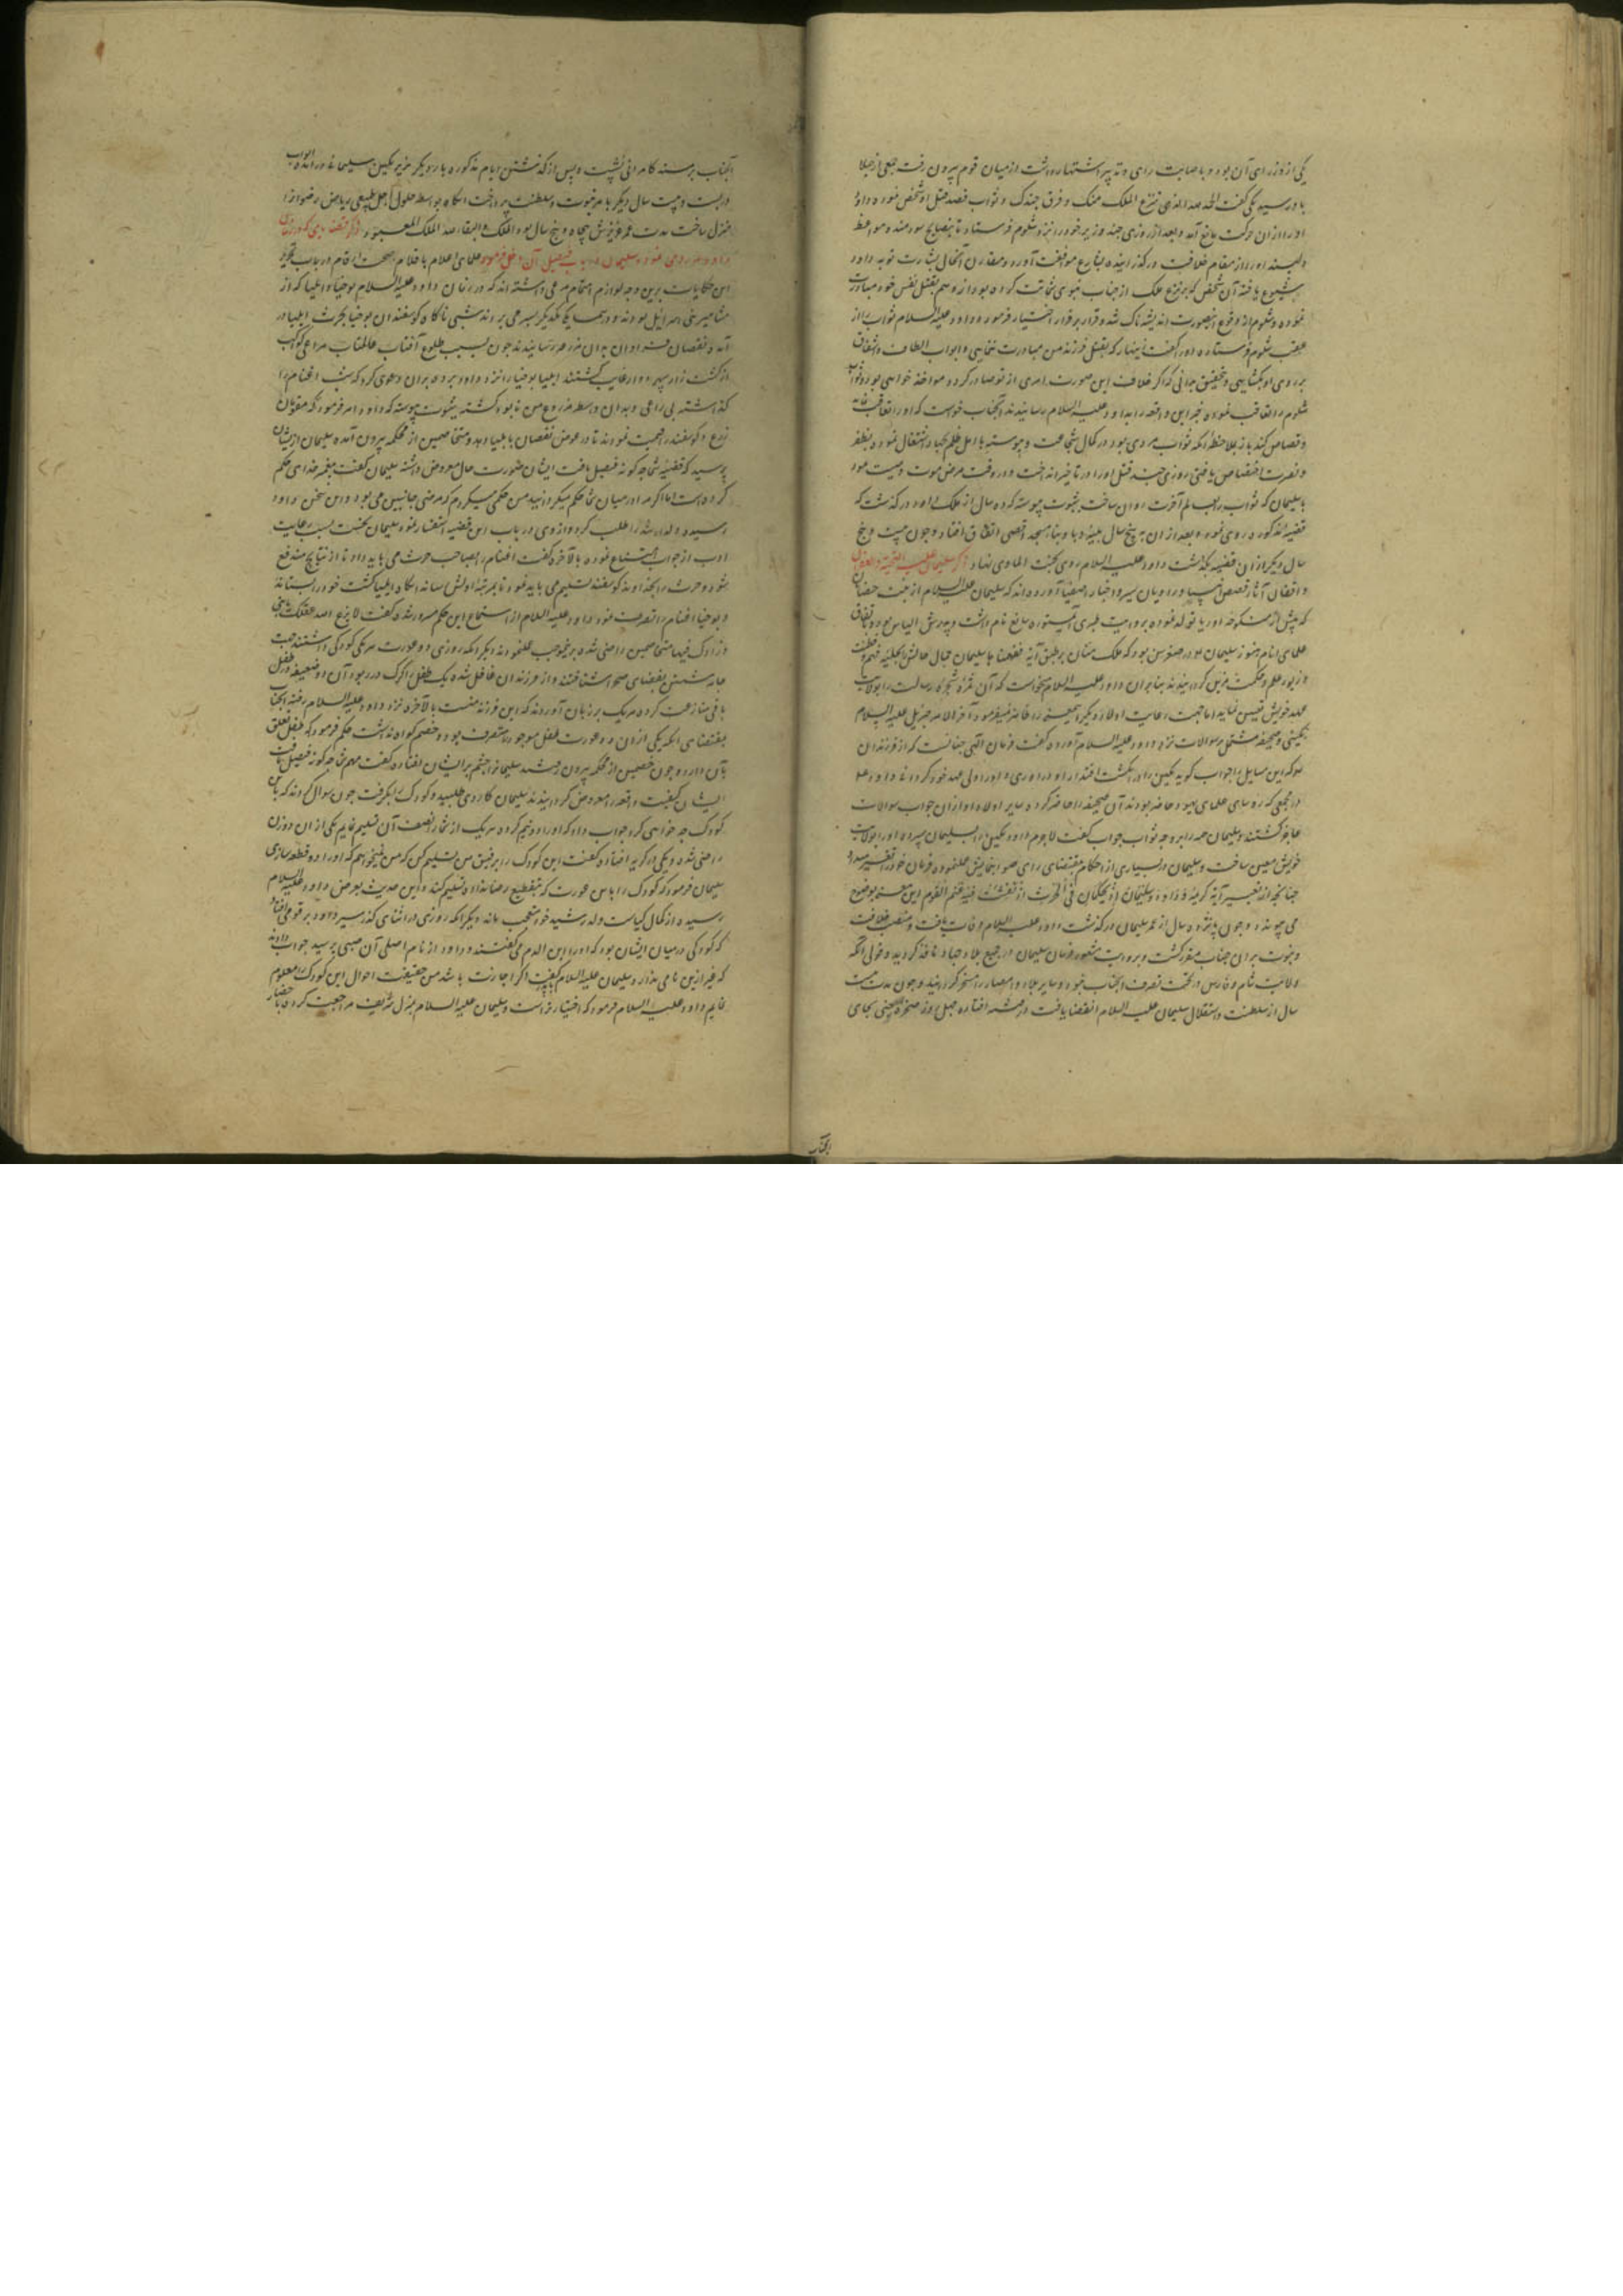 یکی از وزرای آن بود و باصابت رای و تدبیر اشتهار داشت از میان قوم بیرون رفت جمعی از جهلا
با و رسید یکی گفت الحمد لله الذی ینزع الملک منک و فرق جندک و ثواب قصد قتل او شخص نموده داود
او را ازان حرکت مانع آمد و بعد از روزی چند وزیر خود را نزد شلوم فرستاد تا بنصایح سودمند و مواعظ
دلپسند او را از مقام خلافت در گذرانیده بشارع موافقت آورد و مقارن آنحال بشارت توبه داود
شیوع یافته آن شخص که بر نزع ملک از جناب نبوی شماتت کرده بود از وهم بقتل نفس خود مبادرت
نموده و شلوم از وقوع اینصورت اندیشه ناک شد و قرار بر فرار اختیار فرمود و داود علیه السلام ثواب را از
عقب شلوم فرستاده او را گفت زینهار که بقتل فرزند من مبادرت ننمایی و ابواب الطاف و اشفاق
بر روی او بگشایی و تحقیق بدانی که اگر خلاف این صورت امری از تو صادر گردد مواخذ خواهی بود و ثواب
شلوم را تعاقب نموده خبر این واقعه را بداود علیه السلام رسانیدند آنجناب خواست که او را
و قصاص کند باز بملاحظه آنکه ثواب مردی بود در کمال شجاعت و پیوسته با اهل ظلم بجهاد اشتغال نمود و بظفر
و نصرت اختصاص یافتی روزی چند قتل او را در تاخیر انداخت و در وقت مرض موت وصیت نمود
با سلیمان که ثواب را بعالم آخرت روان ساخت بثبوت پیوسته که ده سال از ملک داود در گذشت که
قضیه مذکوره روی نمود و بعد از ان به پنج سال بلیه وبا و بناء مسجد اقصی اتفاق افتاد و چون بیست و پنج
سال دیگر از ان قضیه بگذشت داود علیه السلام روی بجنت الماوی نهاد ذکر سلیمان علیه التحیة و الغفران
واقفان آثار قصص انبیا و راویان سیر و اخبار اصفیا آورده اند که سلیمان علیه السلام از بخت
که پیش از منکوحه اوریا تولد نموده بروایت طبری آن مستوره سابغ نام داشت و بپرورش الیاس بود و باتفاق
علمای انام هنوز سلیمان در صغر سن بود که ملک منان بر طبق آیة ففهمناها سلیمان جمال حالش را بحلیه فهم و فطنت
و زیور علم و حکمت مزین گردانیدند بنابران داود علیه السلام میخواست که آن ثمره شجره رسالت را بولایت
عهد خویش تعیین نماید اما جهت رعایت اولاد دیگر اینمعنی را ظاهر نمیفرمود آخر الامر جبرئیل علیه السلام
نگینی و صحیفه مشتمل بر سوالات نزد داود علیه السلام آورده گفت فرمان الهی چنانست که از فرزندان
هر که این مسایل را جواب گوید نگین را در انگشت اقتدار او در آوری و او را ولی عهد خود گردانی داود علیه
در مجمعی که رؤسای علمای یهود حاضر بودند آن صحیفه را حاضر کرد و سایر اولاد او از ان جواب سوالات
عاجز گشتند و سلیمان همه را بوجه ثواب جواب گفت لاجرم داود نگین را بسلیمان سپرده او را بولایت
خویش معین ساخت و سلیمان در بسیاری از احکام بمقتضای رای صواب نمایش عمل نموده فرمان خود را تغییر میداد
چنانچه از تفسیر آیه کریمه و داود و سلیمان اذ یحکمان فی الحرث اذ نفشت فیه غنم القوم این معنی بوضوح
می پیوندد و چون پانزده سال از عمر سلیمان در گذشت داود علیه السلام وفات یافت و منصب خلافت
و نبوت بر ان جناب مقرر گشت و بروایت مشهور فرمان سلیمان در جمیع بلاد و عباد نافذ گردید و قولی آنکه
ولایت شام و فارس در تحت تصرف آنجناب بود و سایر بلاد و امصار را مسخر گردانید و چون مدت بیست
سال از سلطنت و استقلال سلیمان علیه السلام انقضا یافت در
آنجناب
آنجناب بر مسند کامرانی نشست و پس از گذشتن ایام مذکوره بار دیگر
و بیست سال دیگر بامر نبوت و سلطنت پرداخت انگاه بواسطه حلول اجل طبیعی ریاض رضوان را
منزل ساخت مدت عمر عزیزش پنجاه و پنج سال بود الملک و البقاء لله الملک المعبود ذکر قضایایی که در زمان
داود روی نمود و سلیمان در باب فیصل آن دخل فرمود علمای اعلام باقلام صحت ارقام در باب تحریر
این حکایات برین وجه لوازم اهتمام مرعی داشته اند که در زمان داود علیه السلام یوحنا و ایلیا که از
مشاهیر بنی اسرائیل بودند در همسایگی یکدیگر بسر می بردند شبی ناگاه گوسفندان یوحنا بحرث ایلیا در
آمده نقصان فراوان به ان مزرعه رسانیدند چون بسبب طلوع آفتاب عالمتاب مراعی کواکب
از کشت زار سپهر دوار غایب گشتند ایلیا یوحنا را نزد داود برده بران دعوی کرد که شب اغنام را
گذاشته بی راعی و بدان واسطه مزروع من نابود گشته بثبوت پیوسته که داود امر فرمود که مقومان
زرع و گوسفند را قیمت نمودند تا در عوض نقصان بایلیا دهد و متخاصمین از محکمه بیرون آمده سلیمان از ایشان
پرسید که قضیه شما چگونه فیصل یافت ایشان صورت حال معروض داشته سلیمان گفت پیغمبر خدای حکم
کرده است اما اگر مرا در میان شما حکم میگردانیدید من حکمی میکردم که مرضی جانبین می بود و این سخن بداود
رسیده ولد ارشد را طلب کرد و از وی در باب این قضیه استفسار نمود سلیمان نخست بسبب رعایت
ادب از جواب امتناع نموده بالاخره گفت اغنام را بصاحب حرث می باید داد تا از نتایج منتفع
شود و حرث را بخداوند گوسفند تسلیم می باید نمود تا بمرتبه اولش رساند انگاه ایلیا کشت خود را بستاند
و یوحنا اغنام را تصرف نمود داود علیه السلام از استماع این حکم مسرور شده گفت
متخاصمین راضی شده بر اینموجب عمل نمودند دیگر آنکه روزی دو عورت هر یکی کودکی داشتند جهت
جامه شستن بفضای صحرا شتافتند و از فرزندان غافل شده یک طفل را گرگ در ربود آن دو ضعیفه در طفل
باقی منازعت کرده هر یک بر زبان آوردند که این فرزند منست بالاخره نزد داود علیه السلام رفته آنجناب
بمقتضای آنکه یکی از ان دو عورت طفل موجود را متصرف بود و خصم گواه نداشت حکم فرمود که طفل تعلق
بآن دارد و چون خصمین از محکمه بیرون رفتند سلیمانرا چشم بر ایشان افتاده گفت مهم شما چگونه فیصل یافت
ایشان کیفیت واقعه را معروض گردانیدند سلیمان کاردی طلبید و کودک را بگرفت چون سوال کردند که با این
کودک چه خواهی کرد جواب داد که او را دو نیم کرده هر یک از شما را نصف آن تسلیم نمایم یکی از ان دو زن
راضی شده و یکی در گریه افتاده گفت این کودک را برفیق من تسلیم کن که من نمیخواهم که او را دو قطعه سازی
سلیمان فرمود که کودک را باین عورت که بتقطیع رضا نداد تسلیم کنند و این حدیث بعرض داود علیه السلام
رسیده از کمال کیاست ولد رشید خود متعجب ماند و دیگر آنکه روزی در اثنای گذر سیر داود بر قومی افتاد
که کودکی در میان ایشان بود که او را ابن الدم میگفتند و داود از نام اصلی آن صبی پرسید جواب دادند
که غیر ازین نامی ندارد سلیمان علیه السلام گفت اگر اجازت باشد من حقیقت احوال این کودک را معلوم
نمایم داود علیه السلام فرمود که اختیار تراست و سلیمان علیه السلام بمنزل شریف مراجعت کرد و باحضار